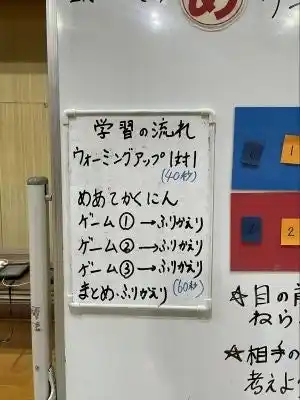 め
学習の流れ
ウォーミングアップ 1対1
(40秒)
めあてかくにん
ゲーム①→ふりかえり
ゲーム②→ふりかえり
ゲーム③→ふりかえり
まとめ・ふりかえり (60秒)
1
2
☆目の前
ねら
☆相手の
考えよ